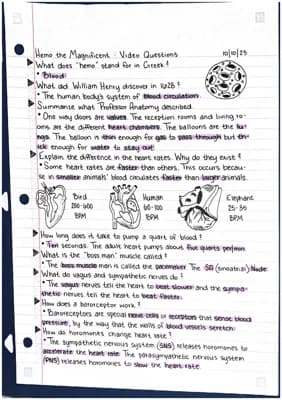 Hemo the Magnificent : Video Questions 10/10/25
What does "hemo" stand for in Greek?
• Blood!
What did William Henry discover in 1628?
• The human body's system of blood circulation.
Summarize what Professor Anatomy described.
• One way doors are valves. The reception rooms and living ro-
oms are the different heart chambers. The balloons are the lu-
ngs. The balloon is thin enough for gas to pass through but th-
ick enough for water to stay out.
Explain the difference in the heart rates. Why do they exist?
• Some heart rates are faster than others. This occurs becau-
se in smaller animals' blood circulates faster than larger animals.
Bird
BPM
Human
BPM
Elephant
25-35
BPM
How long does it take to pump a quart of blood?
• Ten seconds. The adult heart pumps about five quarts per/min.
What is the "boss man" muscle called?
• The boss muscle man is called the pacemaker. The SA (sinoatrial) Node.
What do vagus and sympathetic nerves do?
• The vagus nerves tell the heart to beat slower and the sympa-
thetic nerves tell the heart to beat faster.
How does a baroreceptor work?
• Baroreceptors are special nerve cells or receptors that sense blood
pressure, by the way that the walls of blood vessels stretch.
How do hormones change heart rate?
• The sympathetic nervous system (SNS) releases hormones to
accelerate the heart rate. The parasympathetic nervous system
(PNS) releases hormones to slow the heart rate.